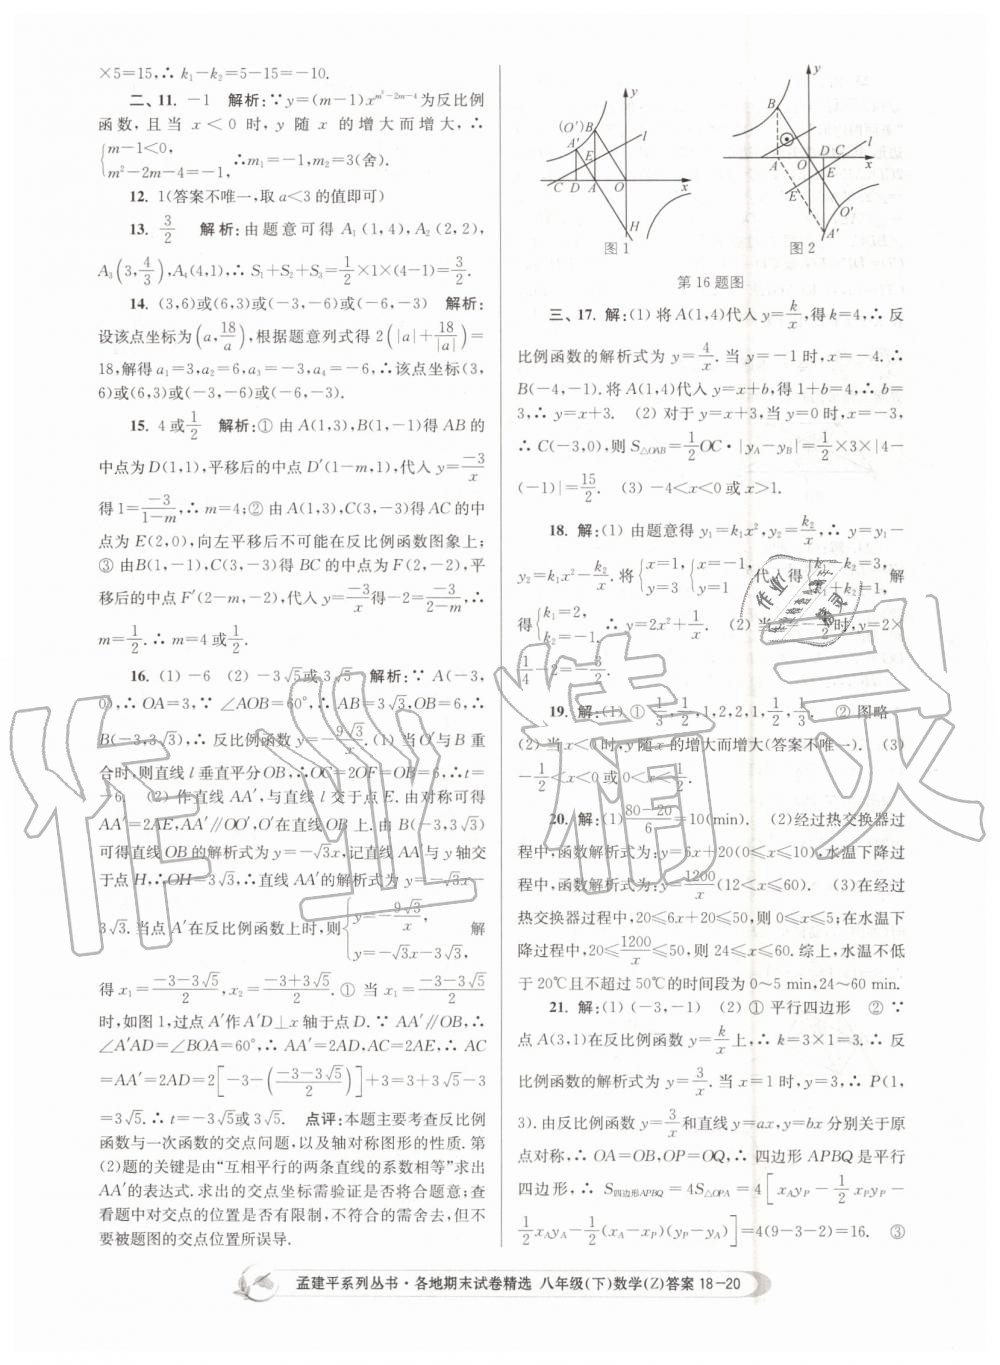 ×5=15,∴ k₁-k₂=5-15=-10.
二、11. -1 解析:∵y=(m-1)x^{m²-2m-4}为反比例
函数,且当 x<0 时,y 随 x 的增大而增大,∴
{m-1<0, m²-2m-4=-1, ∴m₁=-1,m₂=3(舍).
12. 1(答案不唯一,取 a<3 的值即可)
13. 3/2 解析:由题意可得 A₁(1,4),A₂(2,2),
A₃(3,4/3),A₄(4,1),∴S₁+S₂+S₃=1/2×1×(4-1)=3/2.
14. (3,6)或(6,3)或(-3,-6)或(-6,-3) 解析:
设该点坐标为(a,18/a),根据题意列式得 2(|a|+18/|a|)=
18,解得 a₁=3,a₂=6,a₃=-3,a₄=-6,∴该点坐标(3,
6)或(6,3)或(-3,-6)或(-6,-3).
15. 4 或1/2 解析:① 由 A(1,3),B(1,-1)得 AB 的
中点为 D(1,1),平移后的中点 D′(1-m,1),代入 y=-3/x
得1=-3/(1-m),∴m=4;② 由 A(1,3),C(3,-3)得 AC 的中
点为 E(2,0),向左平移不可能在反比例函数图象上;
③ 由B(1,-1),C(3,-3)得 BC 的中点为 F(2,-2),平
移后的中点 F′(2-m,-2),代入 y=-3/x得-2=-3/(2-m),∴
m=1/2.∴m=4或1/2.
16. (1) -6 (2) -3√5或3√5 解析:∵ A(-3,
0),∴OA=3,∵ ∠AOB=60°,∴AB=3√3,OB=6,∴
B(-3,3√3),∴ 反比例函数y=-9√3/x.(1) 当O′与B 重
合时,则直线 l 垂直平分OB,∴OC=2OF=OB=6,∴t=
-6. (2) 作直线 AA′,与直线 l 交于点 E.由对称可得
AA′=2AE,AA′∥OO′,O′在直线OB 上.由 B(-3,3√3)
可得直线OB的解析式为y=-√3x,记直线AA′与y轴交
于点H,∴OH=3√3,∴直线AA′的解析式为 y=-√3x-
3√3.当点A′在反比例函数上时,则{y=-9√3/x, y=-√3x-3√3, 解
得 x₁=(-3-3√5)/2,x₂=(-3+3√5)/2.① 当 x₁=(-3-3√5)/2
时,如图1,过点A′作A′D⊥x轴于点D.∵ AA′∥OB,∴
∠A′AD=∠BOA=60°,∴AA′=2AD,AC=2AE,∴ AC
=AA′=2AD=2[-3-((-3-3√5)/2)]+3=3+3√5-3
=3√5.∴t=-3√5或3√5. 点评:本题主要考查反比例
函数与一次函数的交点问题,以及轴对称图形的性质.第
(2)题的关键是由“互相平行的两条直线的系数相等”求出
AA′的表达式.求出的交点坐标需验证是否符合题意;查
看题中对交点的位置是否有限制,不符合的需舍去,但不
要被题图的交点位置所误导.
y
(O′)B
A′
l
E
C D A O x
H
图1
y
B
l
A O D C x
E
E
O′
A′
图2
第16题图
三、17. 解:(1) 将 A(1,4)代入 y=k/x,得k=4,∴ 反
比例函数的解析式为 y=4/x.当 y=-1 时,x=-4.∴
B(-4,-1).将A(1,4)代入 y=x+b,得 1+b=4,∴ b=
3,∴ y=x+3. (2) 对于 y=x+3,当 y=0 时,x=-3,
∴ C(-3,0),则 S△OAB=1/2OC·|yA-yB|=1/2×3×|4-
(-1)|=15/2. (3) -4<x<0或 x>1.
18. 解:(1) 由题意得 y₁=k₁x²,y₂=k₂/x,∴ y=y₁-
y₂=k₁x²-k₂/x.将{x=1, y=3 {x=-1, y=1 代入得{k₁-k₂=3, k₁+k₂=1, 解
得{k₁=2, k₂=-1. ∴y=2x²+1/x. (2) 当 x=-1/2时,y=2×
1/4-2=-3/2.
19. 解:(1) ① 1/3,1/2,1,2,2,1,1/2,1/3. ② 图略
(2) 当 x<0时,y随x的增大而增大(答案不唯一). (3)
-1/2<x<0或0<x<1/2.
20. 解:(1)(80-20)/6=10(min). (2)经过热交换器过
程中,函数解析式为:y=6x+20(0≤x≤10),水温下降过
程中,函数解析式为:y=1200/x(12<x≤60). (3)在经过
热交换器过程中,20≤6x+20≤50,则 0≤x≤5;在水温下
降过程中,20≤1200/x≤50,则 24≤x≤60.综上,水温不低
于20℃且不超过50℃的时间段为0～5 min,24～60 min.
21. 解:(1) (-3,-1) (2) ① 平行四边形 ② ∵
点 A(3,1)在反比例函数 y=k/x上,∴ k=3×1=3.∴ 反
比例函数的解析式为 y=3/x.当 x=1 时,y=3,∴ P(1,
3).由反比例函数 y=3/x和直线 y=ax,y=bx分别关于原
点对称,∴ OA=OB,OP=OQ,∴ 四边形 APBQ 是平行
四边形,∴ S四边形APBQ=4S△OPA=4[xAyP-1/2xPyP-
1/2xAyA-1/2(xA-xP)(yP-yA)]=4(9-3-2)=16. ③
作业精灵
作业
精灵
孟建平系列丛书·各地期末试卷精选 八年级(下)数学(Z)答案 18-20